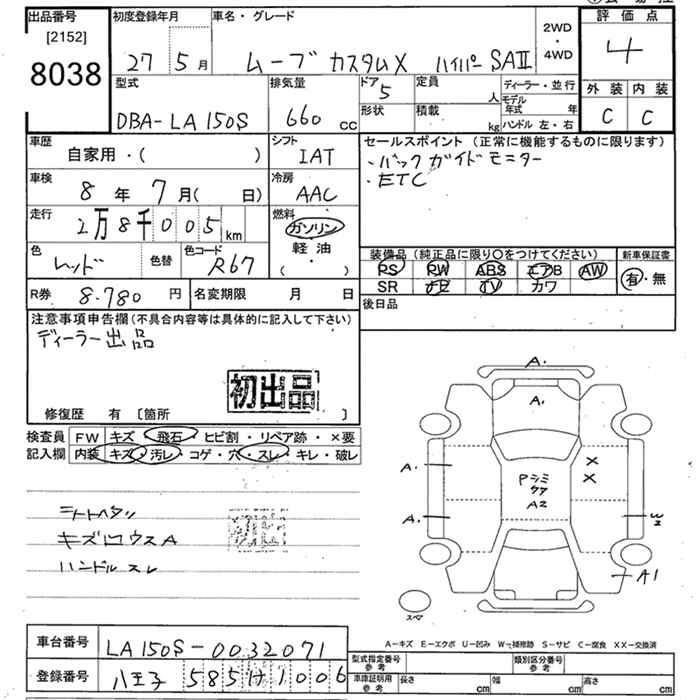 出品番号 [2152]
8038
初度登録年月
27 5月
車名・グレード
ムーブ カスタムX ハイパーSAⅡ
2WD・4WD
評価点
4
外装 内装
C C
型式
DBA-LA150S
排気量
660cc
ドア
5
形状
定員
人
積載
kg
ディーラー・並行
モデル年式 年
ハンドル 左・右
車歴
自家用・( )
シフト
IAT
車検
8年 7月( 日)
冷房
AAC
走行
2万8千005km
燃料
ガソリン
軽油
( ・ )
色
レッド
色替
色コード
R67
R券 8.780円
名変期限 月 日
セールスポイント(正常に機能するものに限ります)
・バックガイドモニター
・ETC
装備品(純正品に限り○をつけてください)
PS PW ABS エアB AW
SR ナビ TV カワ
新車保証書
有・無
後日品
注意事項申告欄(不具合内容等は具体的に記入して下さい)
ディーラー出品
初出品
修復歴 有 [箇所 ]
検査員記入欄
FW キズ・飛石・ヒビ割・リペア跡・×要
内装 キズ・汚レ・コゲ・穴・スレ・キレ・破レ
シートヘタリ
キズ
ハンドルスレ
A.
A.
A.
A.
A2
×
×
W2
A1
スペア
A-キズ E-エクボ U-凹み W-補修跡 S-サビ C-腐食 XX-交換済
車台番号 LA150S-0032071
登録番号 八王子 585 け 1006
型式指定番号 参考
類別区分番号 参考
車庫証明用 参考 長さ cm 幅 cm 高さ cm